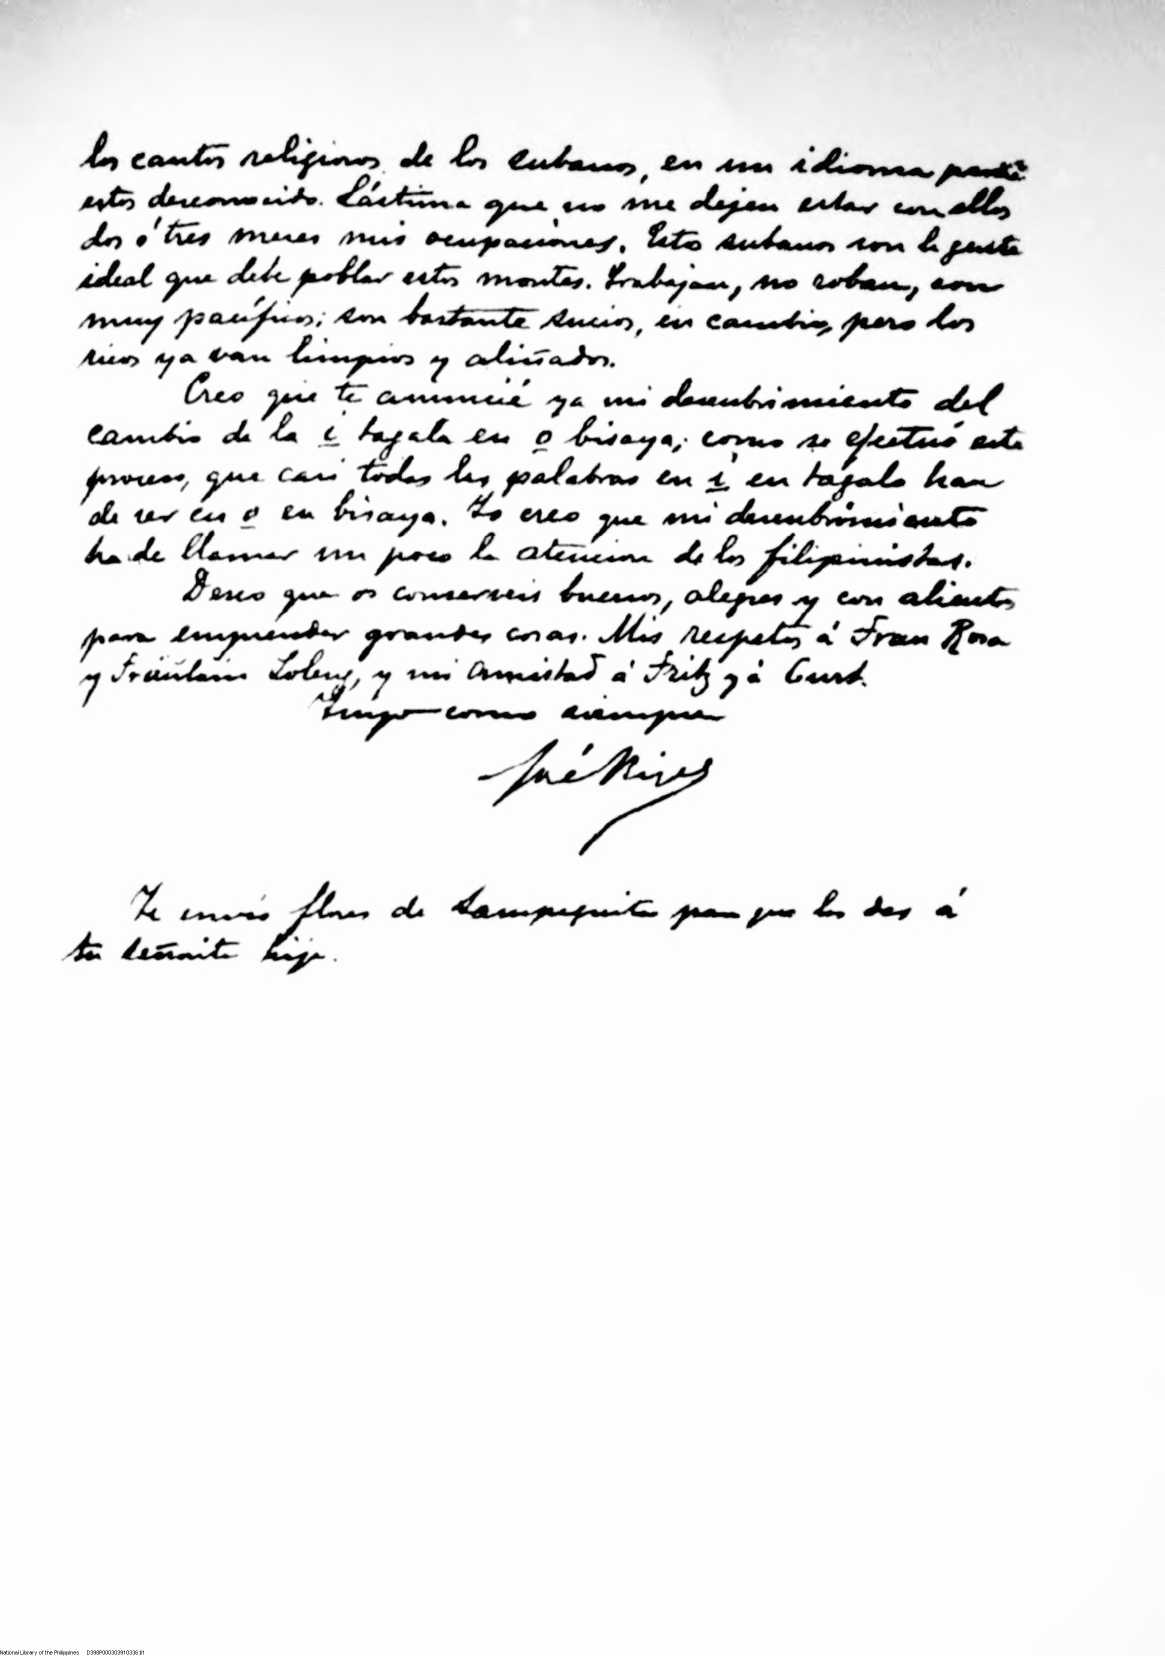 los cantos religiosos de los subanos, en un idioma para
estos desconocido. Lástima que no me dejen estar con ellos
dos ó tres meses mis ocupaciones. Estos subanos son la gente
ideal que debe poblar estos montes. Trabajan, no roban, son
muy pacíficos; son bastante sucios, en cambio, pero los
ricos ya van limpios y aliñados.
Creo que te anuncié ya mi descubrimiento del
cambio de la i tagala en o bisaya; como se efectuó este
proceso, que casi todas las palabras en i en tagalo han
de ser en o en bisaya. Yo creo que mi descubrimiento
ha de llamar un poco la atencion de los filipinistas.
Deseo que os conserveis buenos, alegres y con alientos
para emprender grandes cosas. Mis respetos á Frau Rosa
y Fräulein Loleng, y mi amistad á Fritz y á Curt.
Tuyo como siempre
José Rizal
Te envío flores de sampaguita para que las des á
tu señorita hija.
National Library of the Philippines